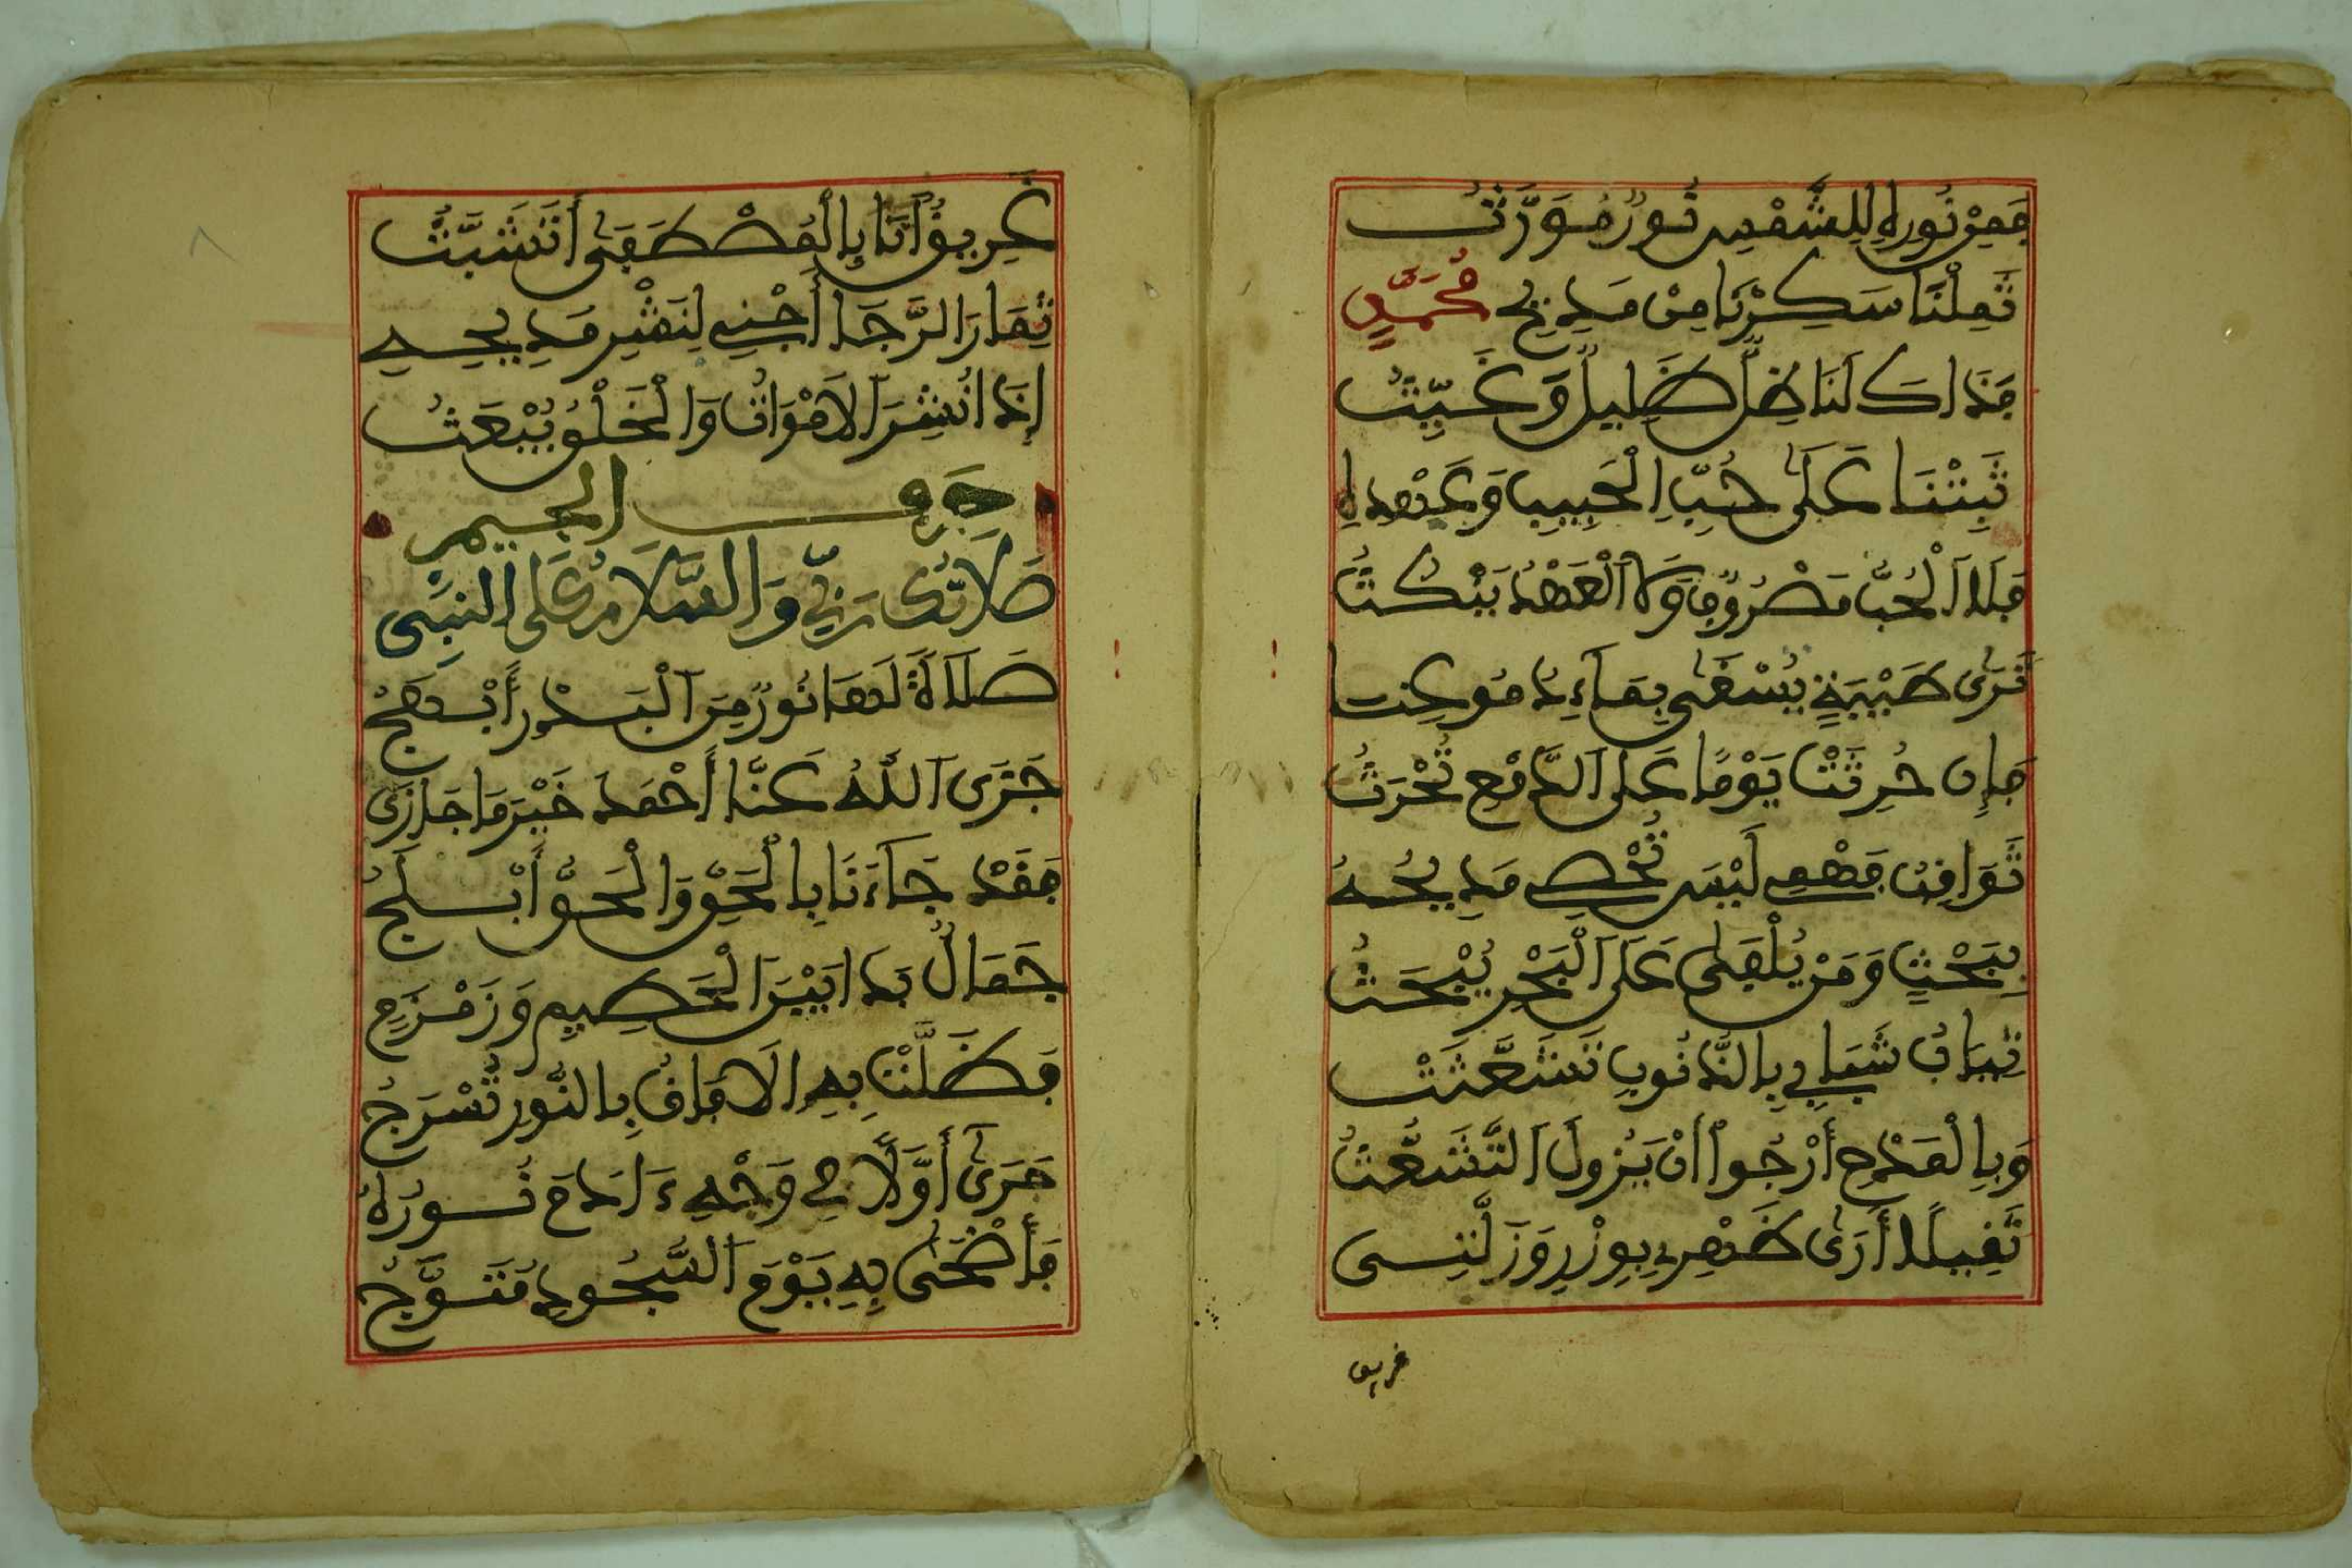 فَمِنْ نُورِهِ لِلشَّمْسِ نُورٌ مُوَرَّثُ
ثَمِلْنَا سَكِرْنَا مِنْ مَدِيحِ مُحَمَّدٍ
فَذَاكَ لَنَا ظِلٌّ ظَلِيلٌ وَغَيِّثُ
ثَبِتْنَا عَلَى حُبِّ الْحَبِيبِ وَعَهْدِهِ
فَلَا الْحُبُّ مَصْرُوفٌ وَلَا الْعَهْدُ يَنْكُثُ
ثَرَى طَيْبَةٍ يُسْقَى بِمَاءِ
فَإِن حُرِثَتْ يَوْمًا عَلَى الدَّمْعِ تُحْرَثُ
ثَوَاقِبُ فَهْمِي لَيْسَ تُحْصِي مَدِيحَهُ
بِبَحْثٍ وَمَنْ يُلْقَى عَلَى الْبَحْرِ يُبْحَثُ
ثِيَابُ شَبَابِي بِالذُّنُوبِ تَشَعَّثَتْ
وَبِالْمَدْحِ أَرْجُواْ أَنْ يَزُولَ التَّشَعُّثُ
ثَقِيلًا أَرَى ظَهْرِي بِوِزْرِ وَزَلَّتِي
غريق
٨
غَرِيقٌ أَنَا بِالْمُصْطَفَى أَتَشَبَّثُ
ثِمَارَ الرَّجَا أَجْنِي لِنَشْرِ مَدِيحِهِ
إِذَا نُشِرَ الَامْوَاتُ وَالْخَلْقُ يُبْعَثُ
حَرْفُ الجِيمِ
صَلَاتُكَ رَبِّي وَالسَّلَامُ عَلَى النَّبِي
صَلَاةً لَهَا نُورٌ مِنَ الْبَدْرِ أَبْهَجُ
جَزَى اللَّهُ عَنَّا أَحْمَدَ خَيْرَ مَا جَازَى
فَقَدْ جَاءَنَا بِالْحَقِّ وَالْحَقُّ أَبْلَجُ
جَمَالٌ بَدَا بَيْنَ الْحَطِيمِ وَزَمْزَمٍ
فَظَلَّتْ بِهِ الَافَاقُ بِالنُّورِ تُسْرَجُ
جَرَى أَوَّلًا فِي وَجْهِ ءَادَمَ نُورُهُ
فَأَضْحَى بِهِ يَوْمَ السُّجُودِ مُتَوَّجُ